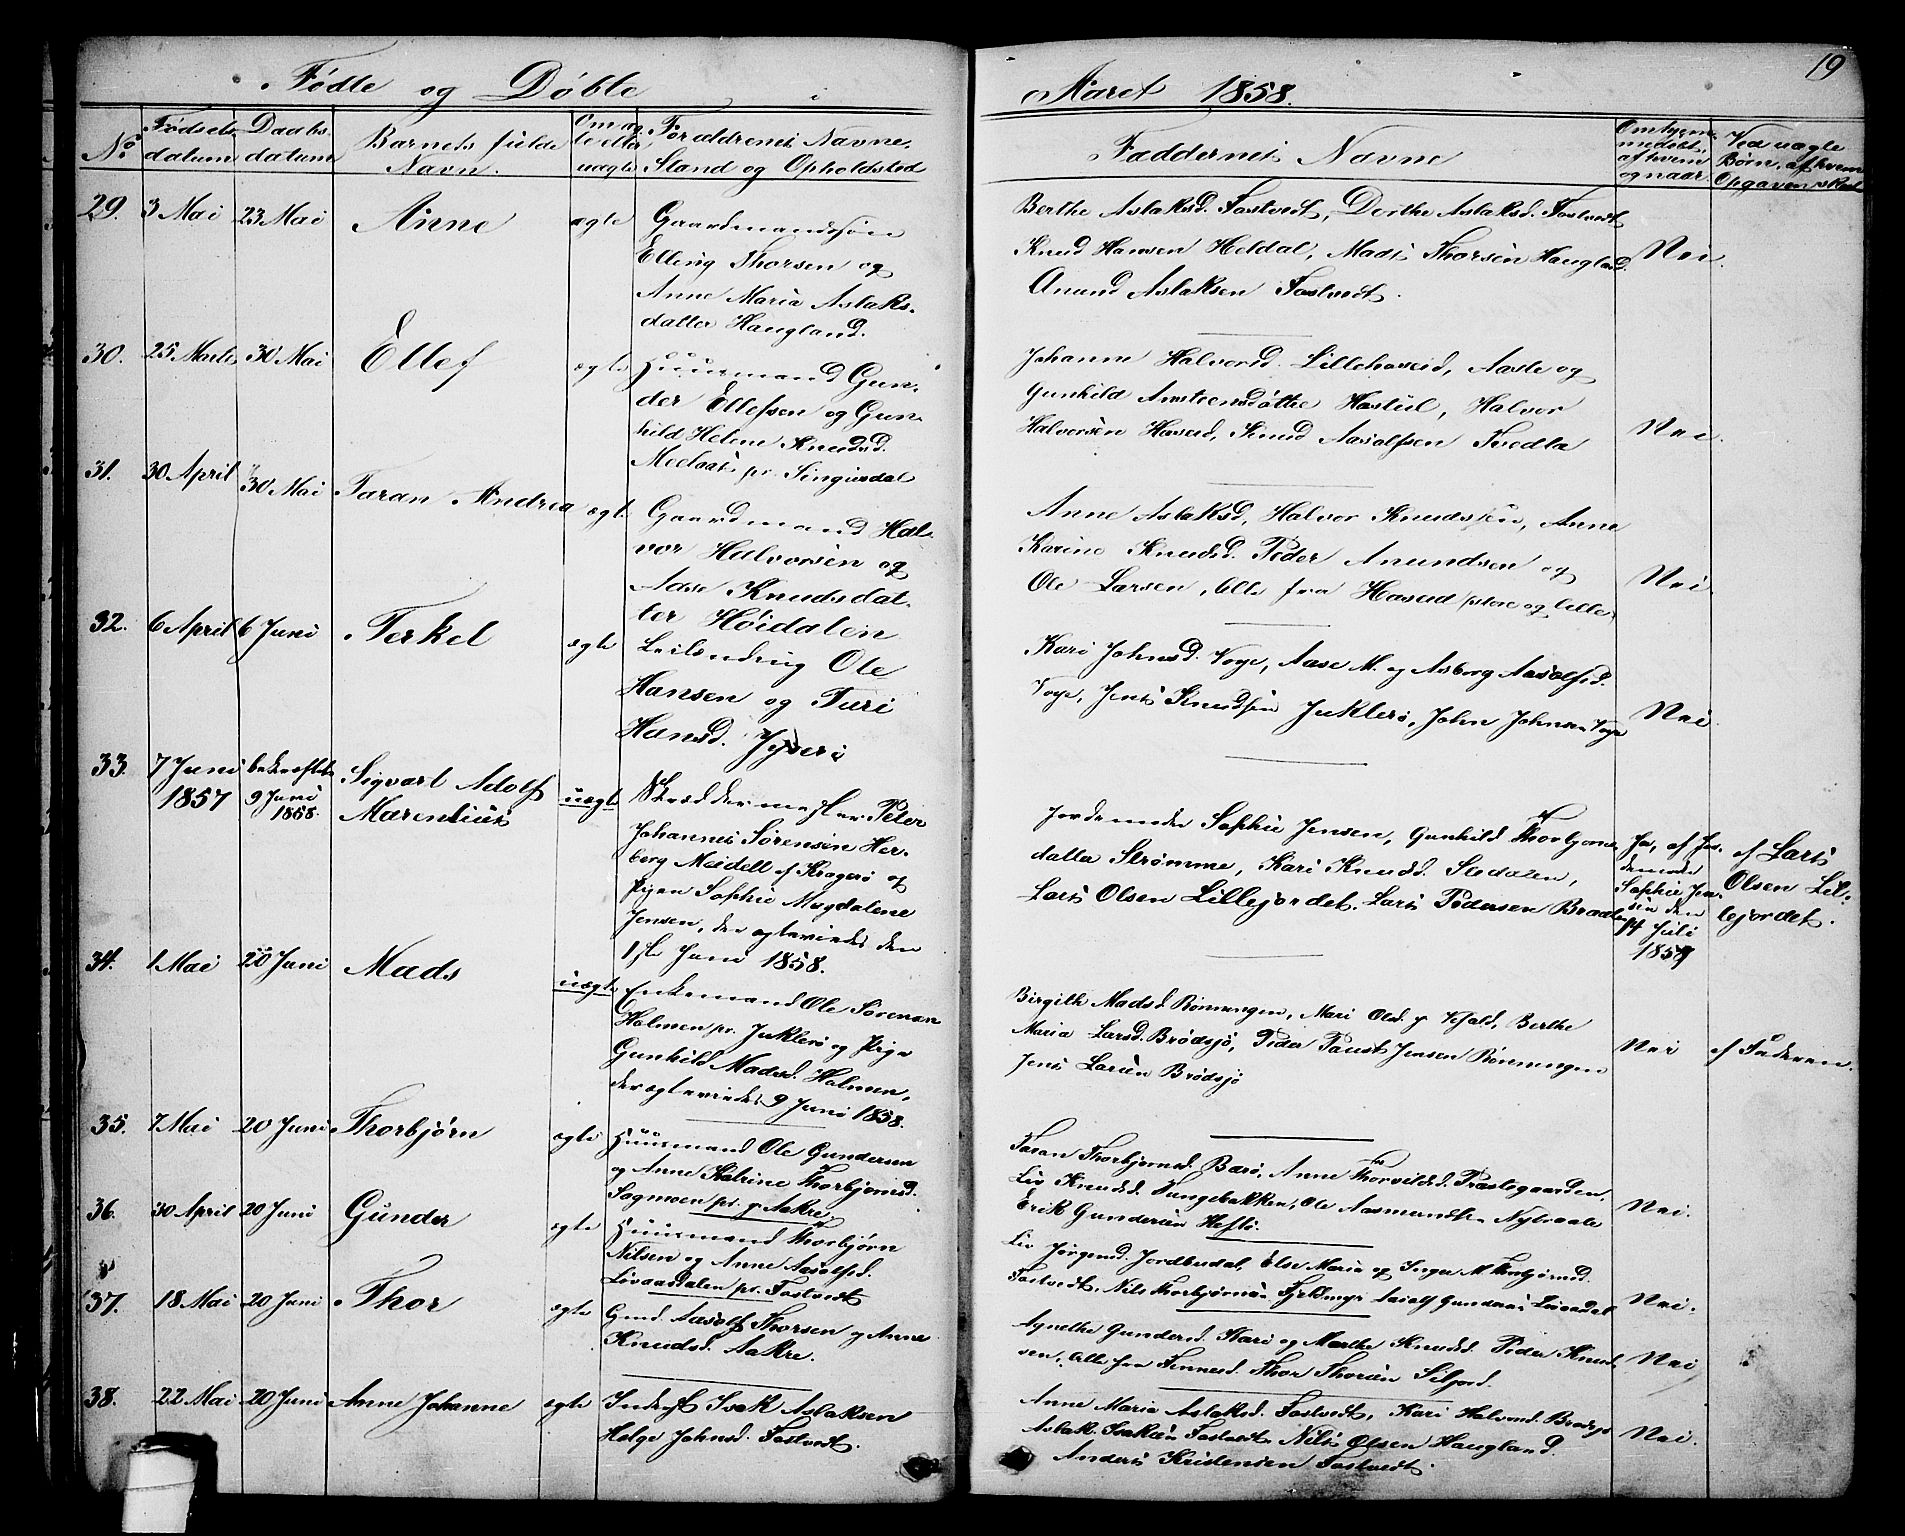 19
Fødte og Døbte i Aaret 1858.
No
Fødsels
datum
Daabs
datum
Barnets fulde
Navn.
Om æg
te eller
uægte
Forældrenes Navne,
Stand og Opholdsted
Faddernes Navne
Om hjem-
medøbt,
af hvem
og naar.
Ved uægte
Børn, af hvem
Opgaven skeet
29. 3 Mai 23 Mai Anne ægte
Gaardmandssøn
Elling Thorsen og
Anne Maria Aslaks-
datter Haugland.
Berthe Aslaksd. Fostvedt, Dorthe Aslaksd. Fostvedt
Knud Hansen Heldal, Mads Thorsen Haugland.
Anund Aslaksen Fostvedt.
Nei.
30. 25 Marts 30 Mai Ellef ægte
Huusmand Gun-
der Ellefsen og Gun-
hild Helene Knudsd.
Moelaas pr. Singusdal
Johanne Halvorsd. Lillehaseid, Aasle og
Gunhild Amsteensdøttre Hastul, Halvor
Halvorsen Haseid, Knud Aasolfsen Tvedta
Nei.
31. 30 April 30 Mai Taran Andrea ægte
Gaardmand Hal-
vor Halvorsen og
Aase Knudsdat-
ter Høidalen
Anne Aslaksd, Halvor Knudssen, Anne
Karine Knudsd. Peder Anundsen og
Ole Larsen, Alle fra Haseid store og lille
Nei.
32. 6 April 6 Juni Terkel ægte
Leilending Ole
Hansen og Turi
Hansd.
Kari Johnsd. Voje, Aase M. og Asborg Aasolfsd.
Voje, Jens Knudsen Juklerø, John Johnsen Voje
Nei.
33. 7 Juni
1857
bekræftet
9 Juni
1858.
Sigvart Adolf
Marenlius
uægte
Skræddermester Peter
Johannes Sørensen Her-
berg Meidell af Kragerø og
Pigen Sophie Magdalene
Jensen, der ægteviedes den
1ste Juni 1858.
Jordemoder Sophie Jensen, Gunhild Thorbjørns-
datter Strømme, Kari Knudsd. Stedalen,
Lars Olsen Lillejordet. Lars Pedersen Braatene
Ja, af Jor-
demoder
Sophie Jen-
sen den
14 Juli
1857
af Lars
Olsen Lil-
lejordet.
34. 1 Mai 20 Juni Mads uægte
Enkemand Ole Sørensen
Holmen pr. Juklerø og Pige
Gunhild Madsd. Holmen,
der ægteviedes 9 Juni 1858.
Birgithe Madsd. Rønningen, Mari Olsd. p. Vefald, Berthe
Maria Larsd. Brødsjø, Peder Faust Jensen Rønningen
Jens Larsen Brødsjø
Nei
af Faderen.
35. 7 Mai 20 Juni Thorbjørn ægte
Huusmand Ole Gundersen
og Anne Katrine Thorbjørnsd.
Sagmoen pr. p. Aakre
Taran Thorbjørnsd. Barø, Anne Thorvildsd. Præstegaarden,
Liv Knudsd. Tangebakken, Ole Aasmundsen Nybraate
Erik Gundersen Hesle.
Nei.
36. 30 April 20 Juni Gunder ægte
Huusmand Thorbjørn
Nilsen og Anne Aasolfsd.
Løvaasdalen pr. Fostvedt
Liv Jørgensd. Jordbudal, Else Maria og Inger M. Thorbjørnsd.
Fostvedt, Nils Thorbjørnsen Fjeldmyr Aasolf Gundersen Løvaasdal
Nei.
37. 18 Mai 20 Juni Thor ægte
Gmd. Aasolf Thorsen og Anne
Knudsd. Aakre.
Agnethe Gundersd. Kari og Marthe Knudsd. Peder Knud-
sen, Alle fra Finnesd. Thor Thorsen Siljord.
Nei
38. 22 Mai 20 Juni Anne Johanne ægte
Inderst Isak Aslaksen
Helge Johnsd. Fostvedt.
Anne Maria Aslaksd. Fostvedt, Kari Halvorsd. Brødsjø
Aslak Isaksen Fostvedt. Nils Olsen Haugland.
Anders Kristensen Fostvedt.
Nei.